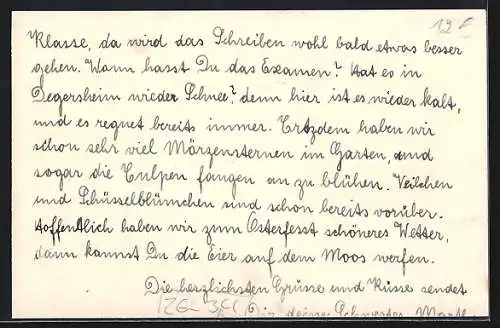 12 F
Klasse, da wird das Schreiben wohl bald etwas besser
gehen. Wann hasst Du das Examen? Hat es in
Degersheim wieder Schnee? denn hier ist es wieder kalt,
und es regnet bereits immer. Trozdem haben wir
schon sehr viel Märzensternen im Garten, und
sogar die Tulpen fangen an zu blühen. Veilchen
und Schüsselblümchen sind schon bereits vorüber.
Hoffentlich haben wir zum Osterfesst schöneres Wetter,
dann kannst Du die Eier auf dem Moos werfen.
Die herzlichsten Grüsse und Küsse sendet
Dir deine Schwester